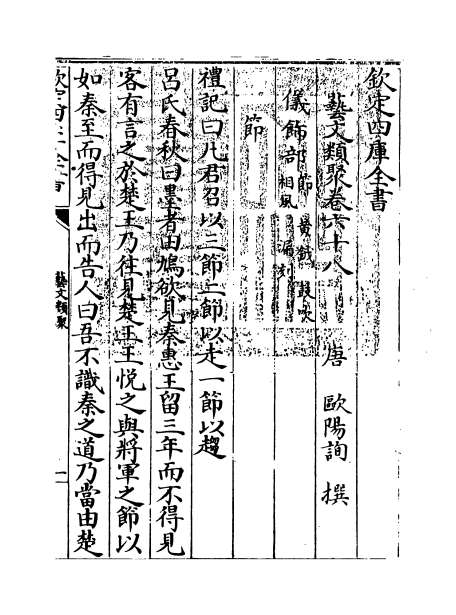 欽定四庫全書
藝文類聚卷六十八
唐 歐陽詢 撰
儀飾部 節 黃鉞 鼓吹 相風 漏刻
節
禮記曰凡君召以三節二節以走一節以趨
呂氏春秋曰墨者田鳩欲見秦惠王留三年而不得見
客有言之於楚王乃往見楚王王悅之與將軍之節以
如秦至而得見出而告人曰吾不識秦之道乃當由楚
藝文類聚
一